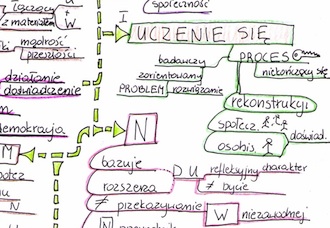 społeczność
I
łączący
z materiałem
U
I
W
UCZENIE SIĘ
mądrość
przeszłości
badawczy
PROCES
zorientowany
niekończący się
PROBLEM rozwiązanie
działanie
doświadczenie
rekonstrukcji
społecz
doświad.
osobis
demokracja
N
M
bazuje
D U refleksyjny charakter
rozszerza
≠ bycie
≠ przekazywanie W niezawodnej
N